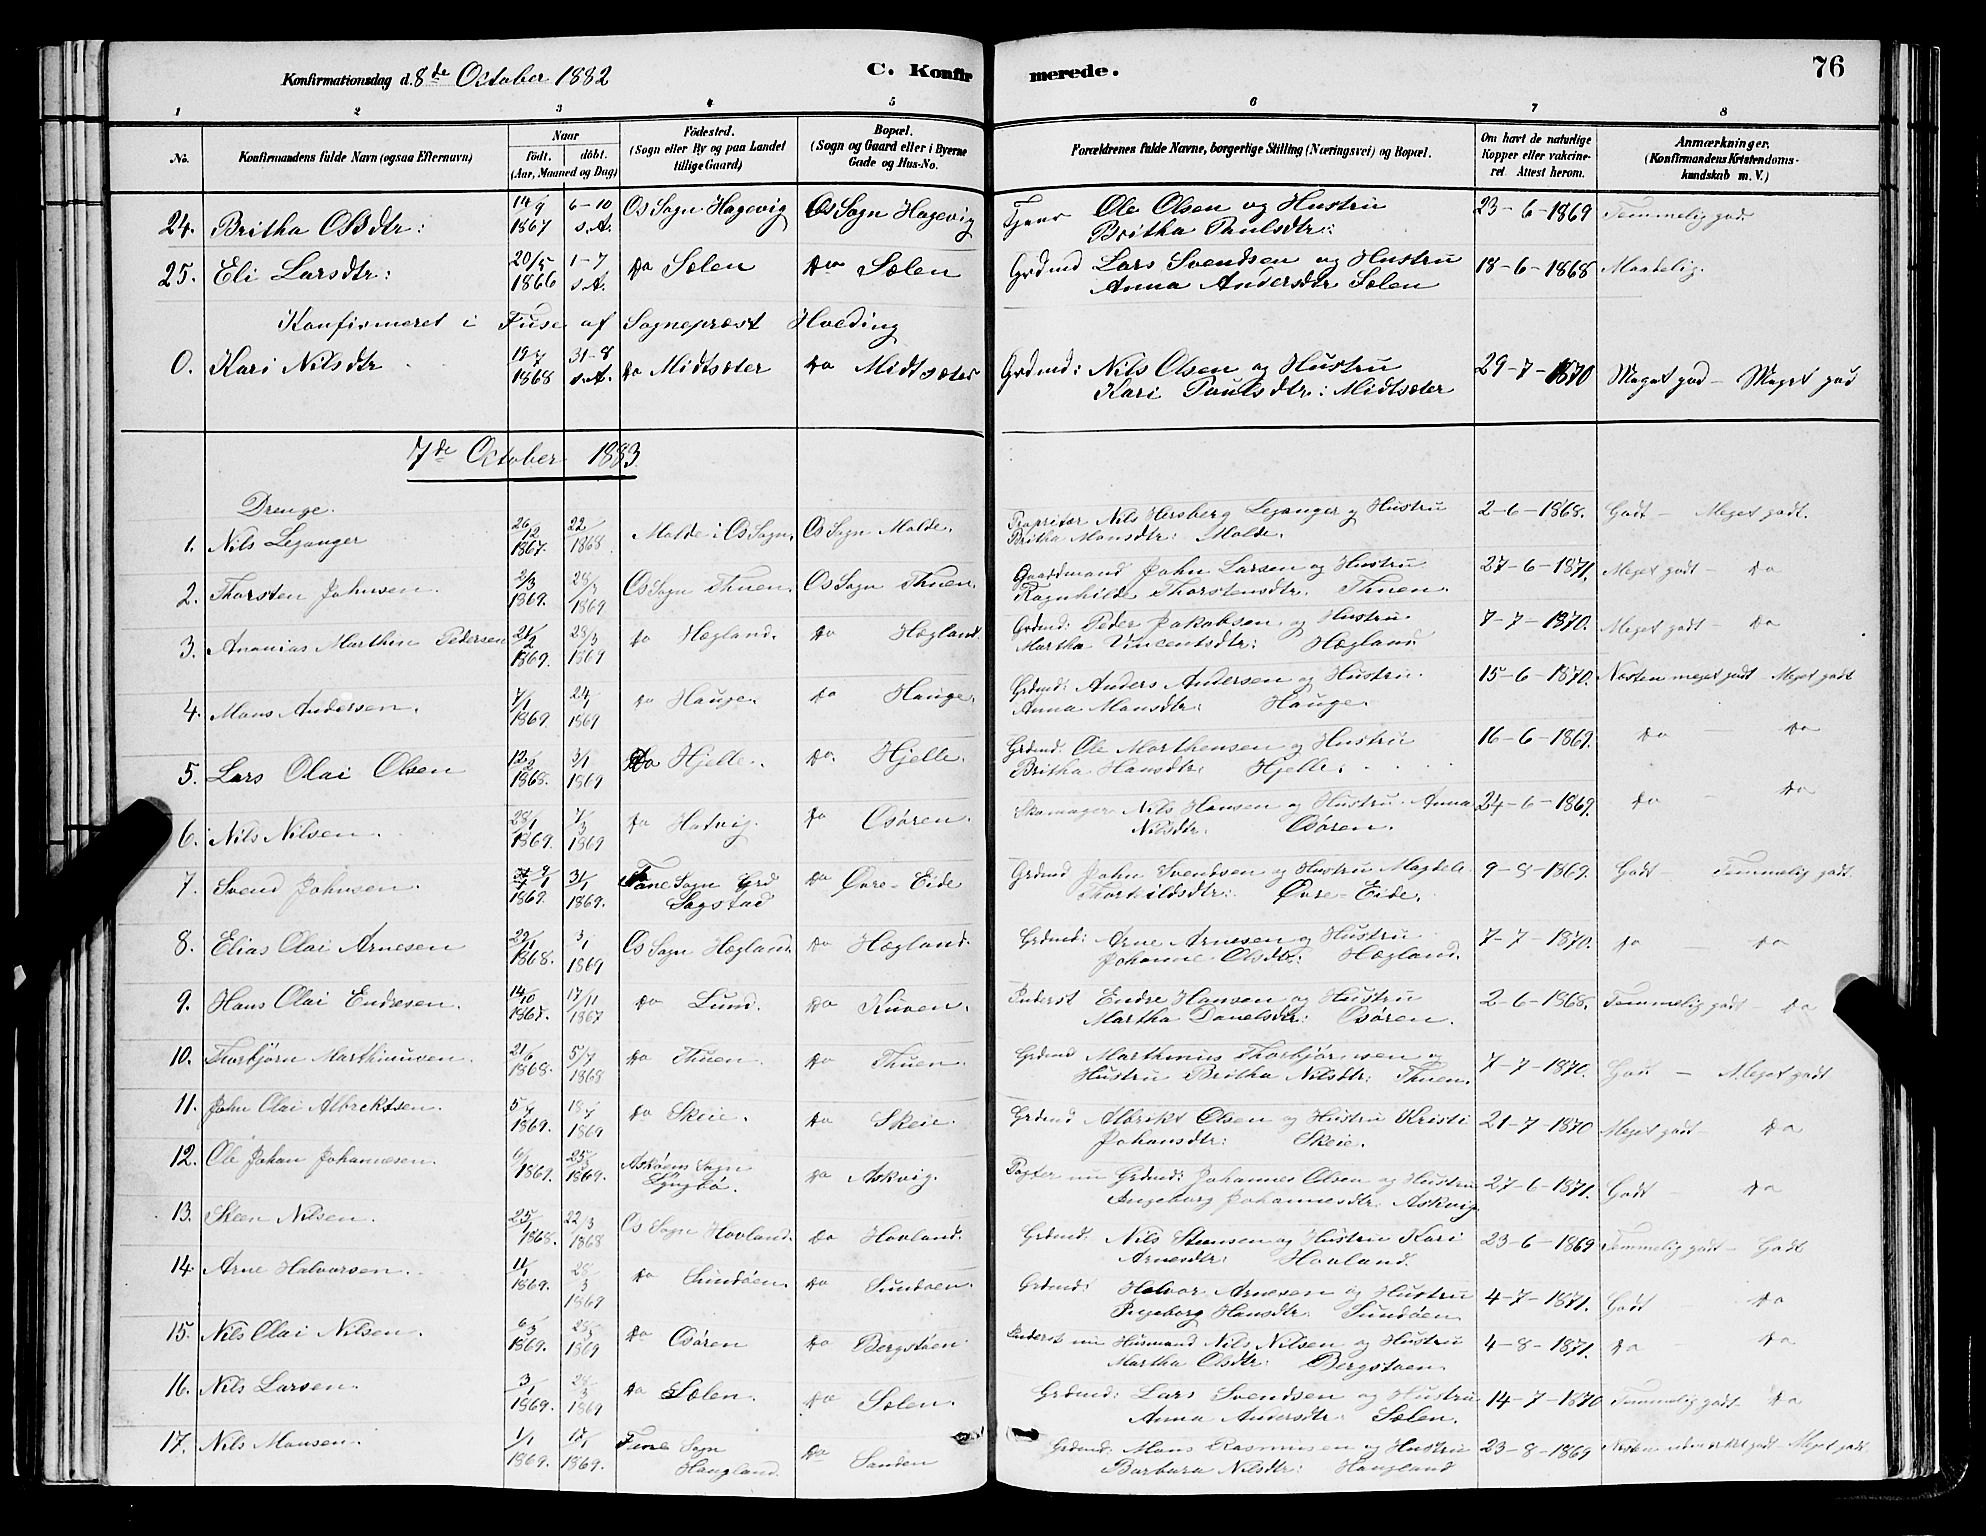 Konfirmationsdag d. 8de October 1882
C. Konfirmerede.
76
1 2 3 4 5 6 7 8
No. Konfirmandens fulde Navn (ogsaa Efternavn) Naar født. døbt. (Aar, Maaned og Dag) Fødested. (Sogn eller By og paa Landet tillige Gaard) Bopæl. (Sogn og Gaard eller i Byerne Gade og Hus-No. Forældrenes fulde Navne, borgerlige Stilling (Næringsvei) og Bopæl. Om havt de naturlige Kopper eller vakcineret Attest herom. Anmærkninger. (Konfirmandens Kristendomskundskab m. V.)
24. Britha Olsdtr: 14/9 1867 6-10 s.A. Os Sogn Hagevig Os Sogn Hagevig Ole Olsen og Hustru 23-6-1869 Temmelig god
Britha Paulsdtr:
25. Eli Larsdtr: 20/5 1866 1-7 s.A. Do Sølen Do Sølen Grdmd Lars Svendsen og Hustru 18-6-1868 Maadelig.
Anna Andersdtr Sølen
Konfirmeret i Fuse af Sognepræst Hvoding
0. Kari Nilsdtr 19-7 1868 31-8 s.A. Do Midtsæter Do Midtsæter Grdmd: Nils Olsen og Hustru 29-7-1870 Meget god - Meget god
Kari Paulsdtr: Midtsæter
7de October 1883
Drenge.
1. Nils Leganger 26/12 1867. 22/ 1868 Molde i Os Sogn. Os Sogn Molde. Propritær Nils Hersberg Leganger og Hustru 2-6-1868. Godt - Meget godt.
Britha Monsdtr: Molde.
2. Thorsten Johnsen. 2/3 1869. 28/3 1869 Os Sogn Thuen. Os Sogn Thuen. Gaardmand John Larsen og Hustru 27-6-1871. Meget godt - Do
Ragnhilde Thorstensdtr. Thuen.
3. Ananias Marthin Pedersen 21/2 1869. 28/3 1869 Do Hægland. Do Hægland. Grdmd: Peder Jakobsen og Hustru 7-7-1870. Meget godt - Do
Martha Vincentsdtr: Hægland
4. Mons Andersen. 7/1 1869. 24/1 1869 Do Hauge. Do Hauge. Grdmd: Anders Andersen og Hustru 15-6-1870. Næsten meget godt - Meget godt
Anna Monsdtr: Hauge.
5. Lars Olai Olsen 12/2 1868. 3/1 1869 Do Hjelle. Do. Hjelle. Grdmd. Ole Marthensen og Hustru 16-6-1869. Do - Do
Britha Hansdtr: Hjelle.
6. Nils Nilsen. 28/1 1869. 7/3 1869 Do Hatvig. Do Osøren. Skomager Nils Hansen og Hustru Anna 24-6-1869. Do - Do
Nilsdtr. Osøren.
7. Svend Johnsen. 9/1 1869. 31/1 1869. Fane Sogn Grd Sagstad Do Øvre-Eide Grdmd John Svendsen og Hustru Magdeli 9-8-1869. Godt - Temmelig godt.
Thorkildsdtr: Øvre-Eide.
8. Elias Olai Arnesen 29/1 1868. 3/1 1869 Os Sogn Hægland. Do Hægland. Grdmd: Arne Arnesen og Hustru 7-7-1870. Do - Do
Johanne Olsdtr: Hægland.
9. Hans Olai Endresen. 14/10 1867. 17/11 1867 Do Lund. Do Kuven. Inderst Endre Hansen og Hustru 2-6-1868. Temmelig godt Do
Martha Danelsdtr: Osøren.
10. Thorbjørn Marthinusen. 21/6 1868. 5/7 1868 Do Thuen. Do Thuen. Grdmd Marthinus Thorbjørnsen og 7-7-1870. Godt - Meget godt
Hustru Britha Nilsdtr: Thuen.
11. John Olai Albrektsen. 1869. 1869 Do Skeie. Do Skeie. Grdmd Albrikt Olsen og Hustru Kristi 21-7-1870 Meget godt - Do
Johansdtr: Skeie.
12. Ole Johan Johannesen. 1869. 1869. Askøens Sogn Lyngbø. Do Askvig. nu Grdmd: Johannes Olsen og Hustru 27-6-1871. Godt - Do
Ingeborg Johannesdtr. Askvig
13. Steen Nilsen. 25/ 1868. 22/3 1868 Os Sogn Hovland. Do Hovland. Grdmd. Nils Steensen og Hustru Kari 23-6-1869 Temmelig godt - Godt
Arnesdtr: Hovland.
14. Arne Halvorsen. 11/1 1869. 28/3 1869 Do Sundøen. Do Sundøen. Grdmd: Halvor Arnesen og Hustru 4-7-1871. Godt Do
Ingeborg Hansdtr. Sundøen
15. Nils Olai Nilsen. 6/3 1869. 28/3 1869 Do Osøren Do Bergstøen Inderst nu Husmand Nils Nilsen og Hustru 4-8-1871. Do Do
Martha Olsdtr: Bergstøen.
16. Nils Larsen. 3/1 1869. 28/3 1869 Do Sølen. Do Sølen. Grdmd: Lars Svendsen og Hustru 14-7-1870 Temmelig godt Do
Anna Andersdtr Sølen.
17. Nils Monsen. 1/1 1869. 17/1 1869. Fane Sogn Haugland. Do Sanden Grdmd: Mons Rasmusen og Hustru 23-8-1869 Meget godt.
Barbara Nilsdtr: Haugland